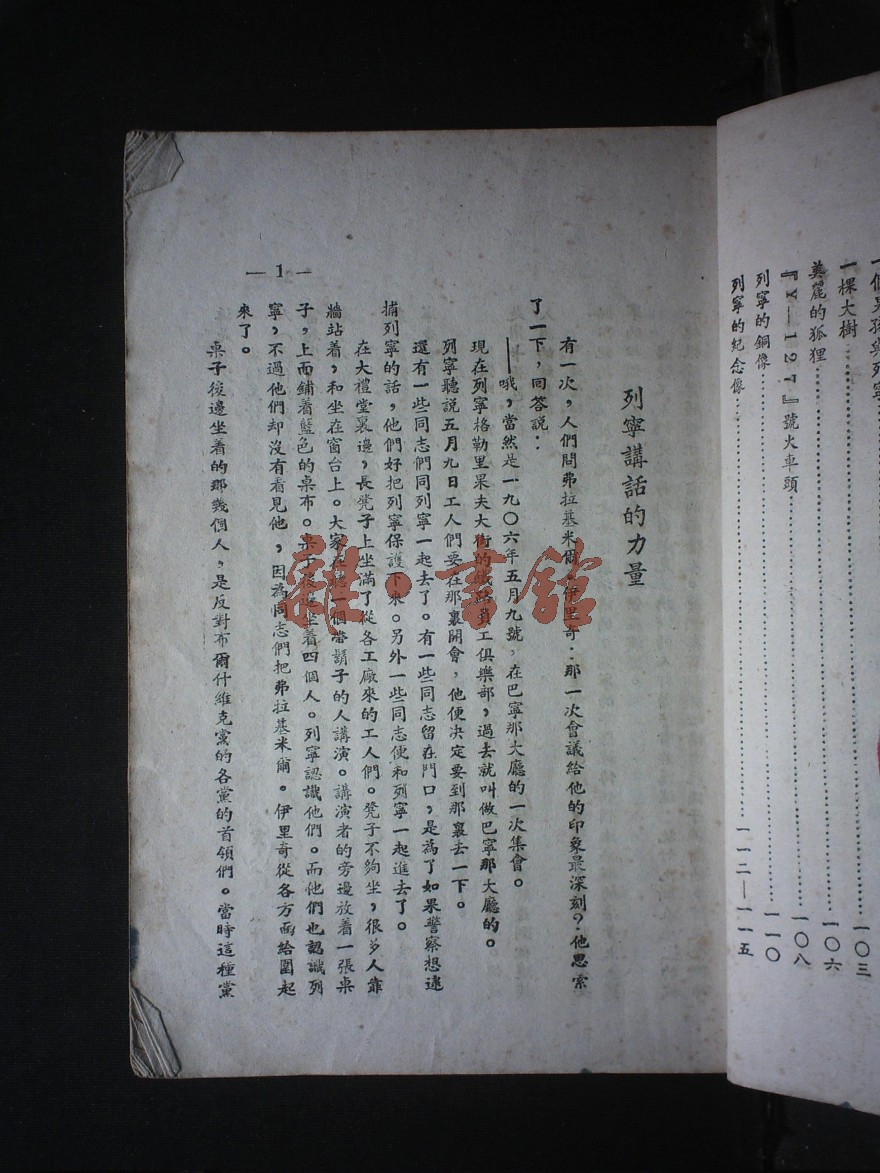 一棵大樹……一〇三
美麗的狐狸……一〇六
『У—127』號火車頭……一〇八
列寧的銅像……一一〇
列寧的紀念像……一一二—一一五
列寧講話的力量
有一次，人們問弗拉基米爾。伊里奇：那一次會議給他的印象最深刻？他思索
了一下，回答說：
——哦，當然是一九〇六年五月九號，在巴寧那大廳的一次集會。
現在列寧格勒里果夫大街的鐵路員工俱樂部，過去就叫做巴寧那大廳的。
列寧聽說五月九日工人們要在那裏開會，他便決定要到那裏去一下。
還有一些同志們同列寧一起去了。有一些同志留在門口，是為了如果警察想逮
捕列寧的話，他們好把列寧保護下來。另外一些同志便和列寧一起進去了。
在大禮堂裏邊，長凳子上坐滿了從各工廠來的工人們。凳子不夠坐，很多人靠
牆站着，和坐在窗台上。大家在聽一個帶鬍子的人講演。講演者的旁邊放着一張桌
子，上面鋪着藍色的桌布。桌子後邊坐着四個人。列寧認識他們。而他們也認識列
寧，不過他們却沒有看見他，因為同志們把弗拉基米爾。伊里奇從各方面給圍起
來了。
桌子後邊坐着的那幾個人，是反對布爾什維克黨的各黨的首領們。當時這種黨
— 1 —
雜·書館